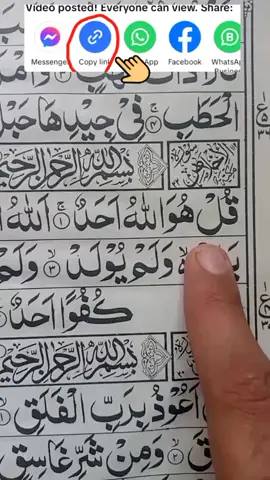 Video posted! Everyone can view. Share:
Messenger Copy link WhatsApp Facebook WhatsApp
الْحَطَبِ ۝۴ فِیْ جِیْدِهَا حَبْلٌ
بِسْمِ اللهِ الرَّحْمٰنِ الرَّحِیْمِ
قُلْ هُوَ اللهُ اَحَدٌ ۝۱ اَللهُ
وَلَمْ یُوْلَدْ ۝۳ وَلَمْ
كُفُوًا اَحَدٌ
بِسْمِ اللهِ الرَّحْمٰنِ الرَّحِیْمِ
اَعُوْذُ بِرَبِّ الْفَلَقِ ۝۱
وَمِنْ شَرِّ غَاسِقٍ